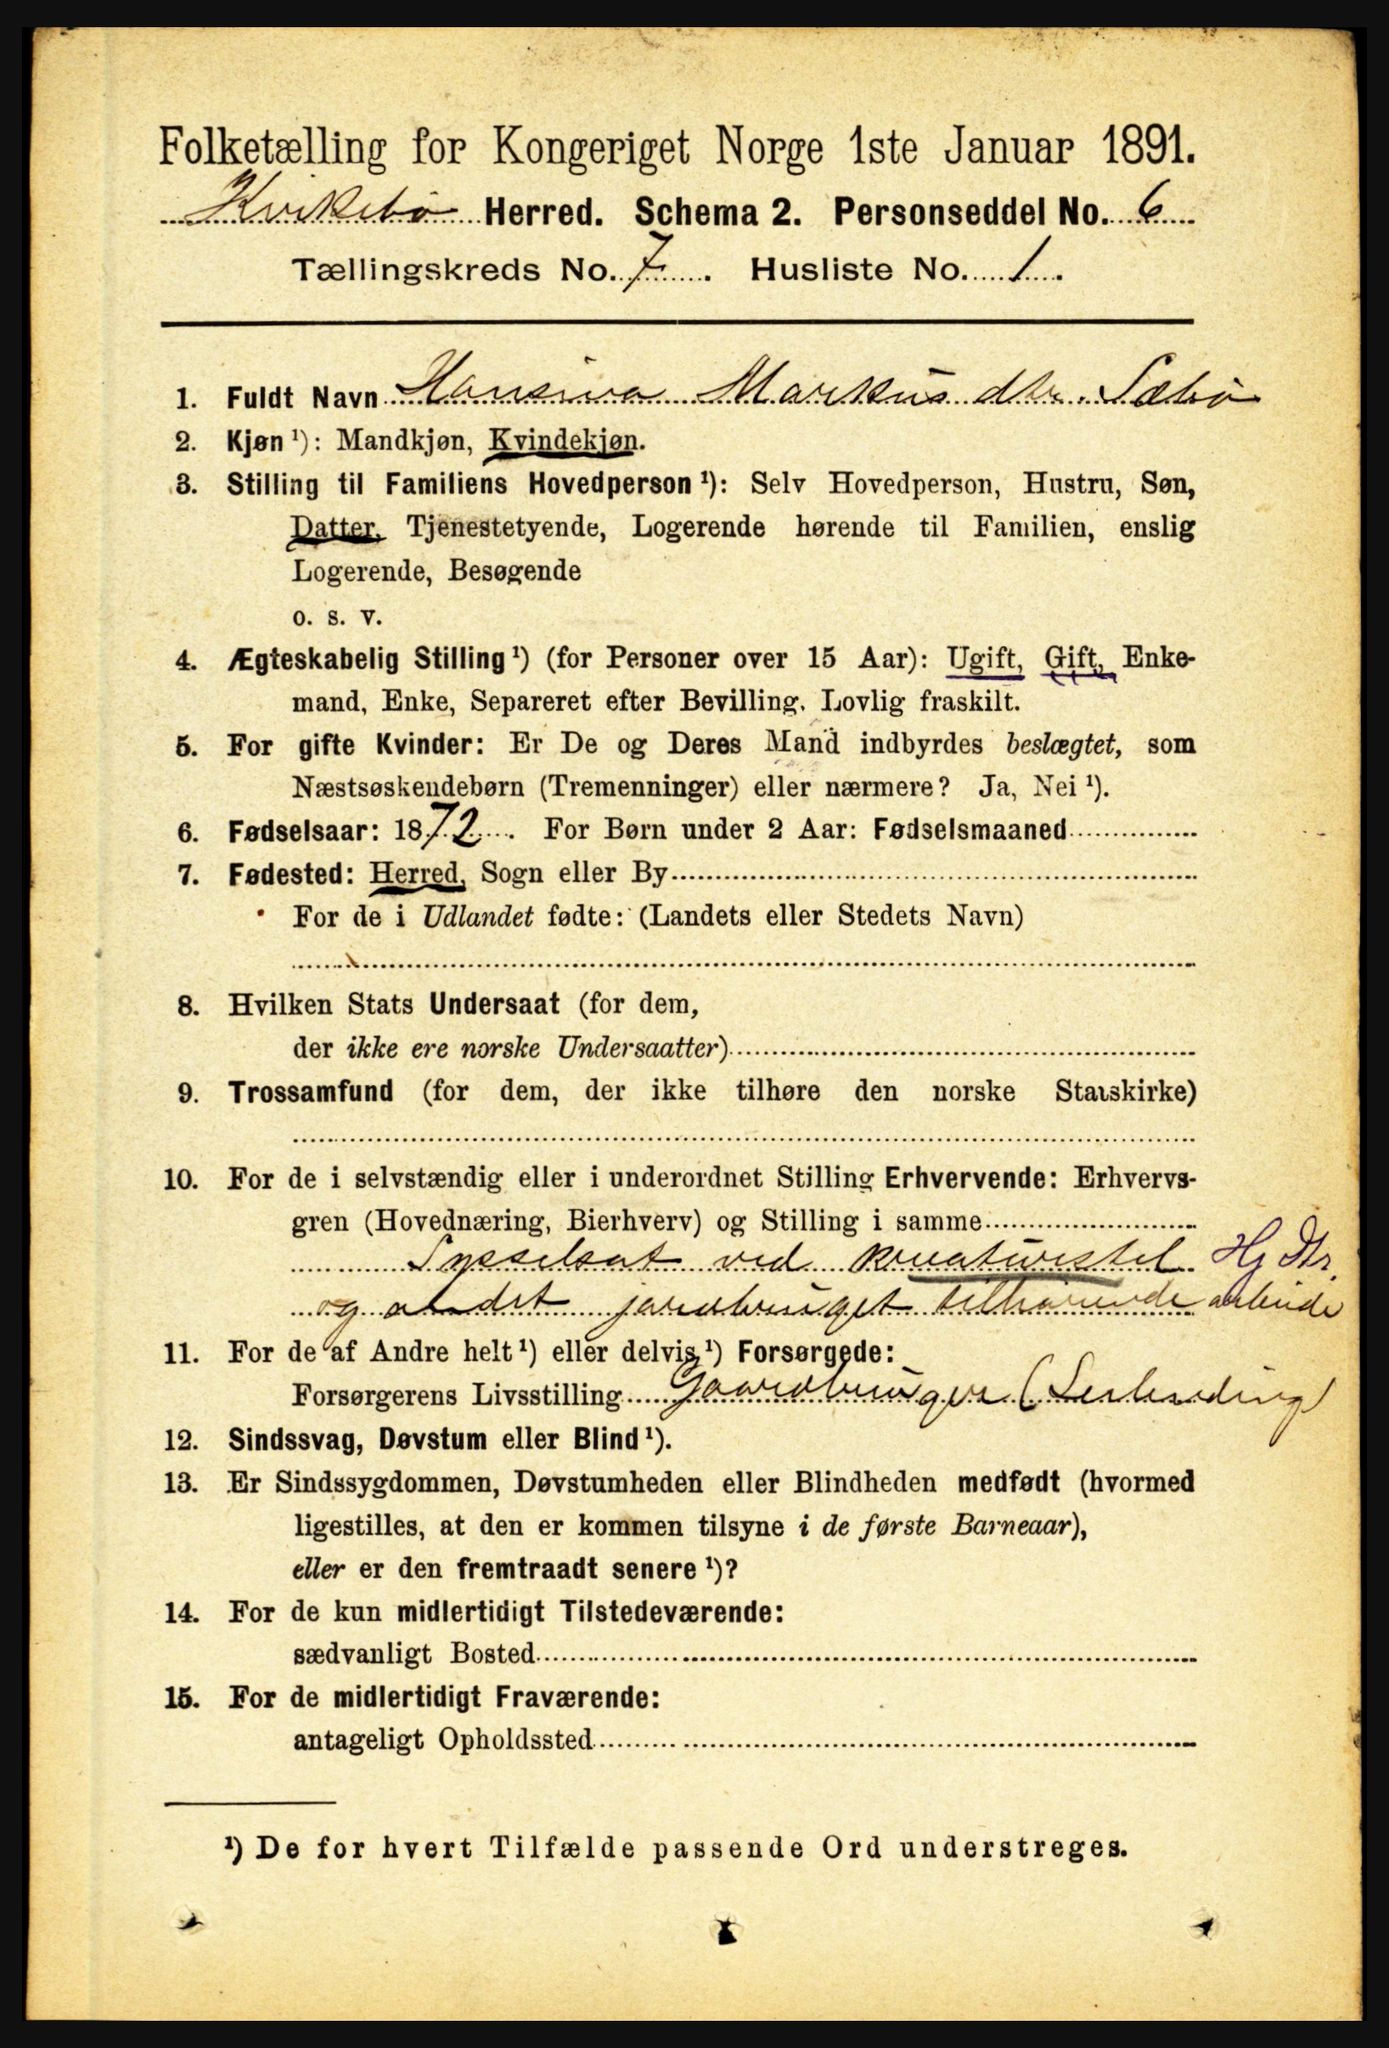 Folketælling for Kongeriget Norge 1ste Januar 1891.
Kvikebø Herred. Schema 2. Personseddel No. 6
Tællingskreds No. 7. Husliste No. 1.
1. Fuldt Navn Hansina Markusdtr. Sæbø
2. Kjøn ¹): Mandkjøn, Kvindekjøn.
3. Stilling til Familiens Hovedperson ¹): Selv Hovedperson, Hustru, Søn,
Datter, Tjenestetyende, Logerende hørende til Familien, enslig
Logerende, Besøgende
o. s. v.
4. Ægteskabelig Stilling ¹) (for Personer over 15 Aar): Ugift, Gift, Enke-
mand, Enke, Separeret efter Bevilling. Lovlig fraskilt.
5. For gifte Kvinder: Er De og Deres Mand indbyrdes beslægtet, som
Næstsøskendebørn (Tremenninger) eller nærmere? Ja, Nei ¹).
6. Fødselsaar: 1872. For Børn under 2 Aar: Fødselsmaaned
7. Fødested: Herred, Sogn eller By
For de i Udlandet fødte: (Landets eller Stedets Navn)
8. Hvilken Stats Undersaat (for dem,
der ikke ere norske Undersaatter)
9. Trossamfund (for dem, der ikke tilhøre den norske Statskirke)
10. For de i selvstændig eller i underordnet Stilling Erhvervende: Erhvervs-
gren (Hovednæring, Bierhverv) og Stilling i samme
Sysselsat ved kreaturstel Hj Dtr.
og andet jordbruget tilhørende arbeide
11. For de af Andre helt ¹) eller delvis ¹) Forsørgede:
Forsørgerens Livsstilling Gaardbruger (Leilending)
12. Sindssvag, Døvstum eller Blind ¹).
13. Er Sindssygdommen, Døvstumheden eller Blindheden medfødt (hvormed
ligestilles, at den er kommen tilsyne i de første Barneaar),
eller er den fremtraadt senere ¹)?
14. For de kun midlertidigt Tilstedeværende:
sædvanligt Bosted
15. For de midlertidigt Fraværende:
antageligt Opholdssted
¹) De for hvert Tilfælde passende Ord understreges.